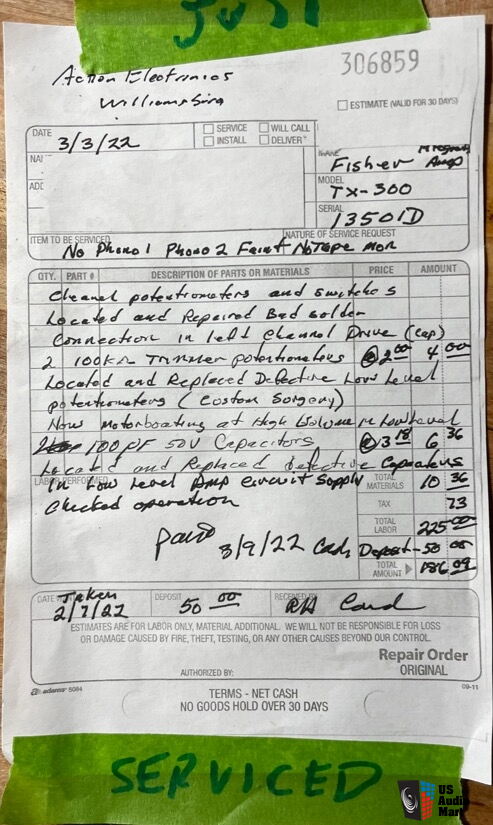 JUST
Action Electronics
Williamsburg
306859
ESTIMATE (VALID FOR 30 DAYS)
DATE 3/3/22
SERVICE WILL CALL
INSTALL DELIVER
NAME Fisher Amp
MODEL
TX-300
SERIAL
13501D
ITEM TO BE SERVICED NATURE OF SERVICE REQUEST
No Phono 1 Phono 2 Faint No Tape Mon
QTY. PART # DESCRIPTION OF PARTS OR MATERIALS PRICE AMOUNT
Cleaned potentiometers and switches
Located and Repaired Bad Solder
Connection in left Channel Drive (cap)
2 100K Trimmer potentiometers @ 2 00 4 00
Located and Replaced Defective Low Level
potentiometers (Custom Surgery)
Now Motorboating at High Volume in Low Level
100 pF 50V Capacitors @ 3 18 6 36
Located and Replaced defective Capacitors
LABOR PERFORMED In Low Level Amp Circuit Supply TOTAL MATERIALS 10 36
Checked operation TAX 73
TOTAL LABOR 225 00
paid 3/9/22 Cash Deposit - 50 00
TOTAL AMOUNT 186 09
DATE Taken 2/7/22 DEPOSIT 50 00 RECEIVED BY Card
ESTIMATES ARE FOR LABOR ONLY, MATERIAL ADDITIONAL. WE WILL NOT BE RESPONSIBLE FOR LOSS
OR DAMAGE CAUSED BY FIRE, THEFT, TESTING, OR ANY OTHER CAUSES BEYOND OUR CONTROL.
Repair Order
ORIGINAL
AUTHORIZED BY:
adams 5084
TERMS - NET CASH
09-11
NO GOODS HOLD OVER 30 DAYS
SERVICED
US
Audio
Mart